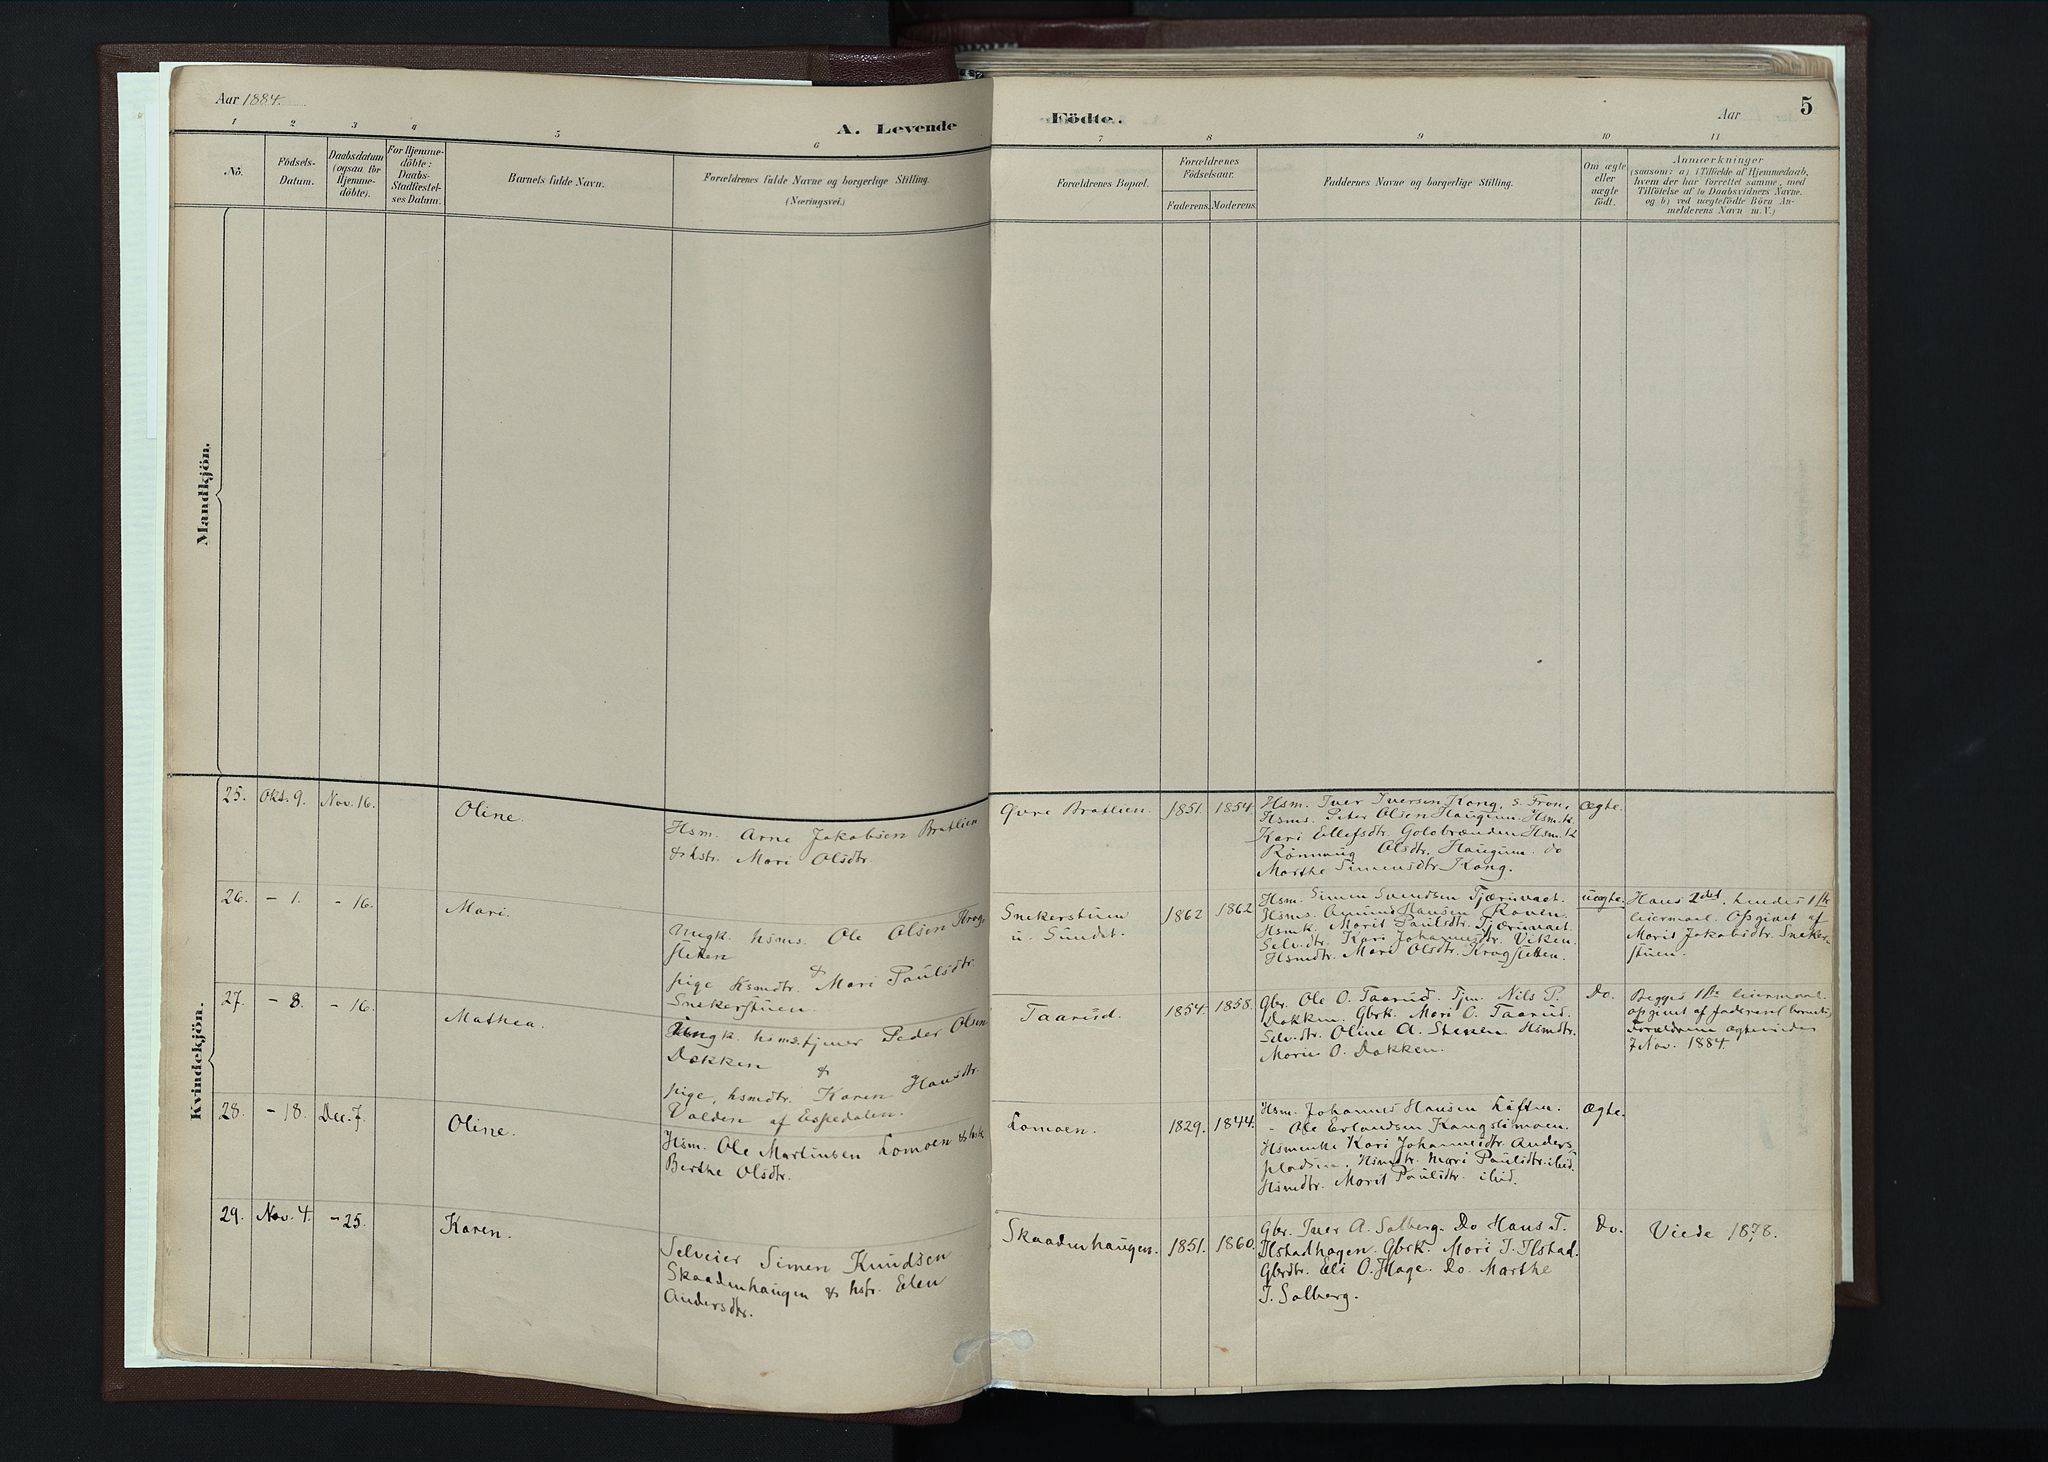 Aar 1884.
A. Levende
Födte.
Aar
5
1 2 3 4 5 6 7 8 9 10 11
No.
Födsels-
Datum.
Daabsdatum
(ogsaa for
Hjemme-
döbte).
For Hjemme-
döbte:
Daabs-
Stadfæstel-
ses Datum.
Barnets fulde Navn.
Forældrenes fulde Navne og borgerlige Stilling.
(Næringsvei.)
Forældrenes Bopæl.
Forældrenes
Födselsaar.
Faderens. Moderens.
Faddernes Navne og borgerlige Stilling.
Om ægte
eller
uægte
født.
Anmærkninger
(saasom: a) i Tilfælde af Hjemmedaab,
hvem der har forrettet samme, med
Tilföielse af to Daabsvidners Navne.
og b) ved uægtefödte Börn An-
melderens Navn m. V.)
Mandkjön.
Kvindekjön.
25. Okt. 9. Nov. 16. Oline.
Hsm. Arne Jakobsen Bratlien
& hstr. Mari Olsdtr.
Øvre Bratlien. 1851. 1854.
Hsm. Iver Iversen Kong, s. Fron,
Hsms. Peter Olsen Haugum. Hsm.k.
Kari Ellefsdtr. Golobrænden Hsm.k
Rønnaug Olsdtr. Haugum. do
Marthe Simensdtr. Kong.
Ægte.
26. - 1. - 16. Mari.
Ungk. hsms. Ole Olsen Krog-
sletten &
pige hsmdtr. Mari Paulsdtr.
Snekerstuen.
Snekerstuen
u. Sundet. 1862 1862
Hsm. Simen Svendsen Tjæruvaet.
Hsms. Amund Hansen Roven.
Hsmk. Marit Paulsdtr. Tjæruvaet.
Selv.dtr. Kari Johannesdtr. Viken.
Hsmdtr. Mari Olsdtr. Krogsletten.
uægte.
Hans 2det, hendes 1ste
leiermaal. Opgivet af
Marit Jakobsdtr. Sneker-
stuen.
27. - 8. - 16. Mathea.
Ungk. hsms. tjener Peder Olsen
Dokken &
pige, hsmdtr. Karen Hansdtr.
Volden af Espedalen.
Taarud. 1854. 1858.
Gbr. Ole O. Taarud. Tjm. Nils P.
Dokken. Gbrk. Mari O. Taarud.
Selv.dtr. Oline A. Steen Hsmdtr.
Marie O. Dokken.
Do.
Begges 1ste leiermaal.
opgivet af faderen
Forældrene ægteviedes
7 Nov. 1884.
28. - 18. Dec. 7. Oline.
Hsm. Ole Martinsen Lomoen & hsk
Berthe Olsdtr.
Lomoen. 1829. 1844.
Hsm. Johannes Hansen Loften.
- Ole Erlandsen Kongslimoen.
Hsmenke Kari Johannesdtr. Anders
pladsen. Hsmdtr. Mari Paulsdtr. ibid.
Hsmdtr. Marit Paulsdtr. ibid.
Ægte.
29. Nov. 4. - 25. Karen.
Selveier Simen Knudsen
Skaadenhaugen & hstr. Elen
Andersdtr.
Skaadenhaugen. 1851. 1860.
Gbr. Iver A. Solberg. Do Hans T.
Ilstadhagen. Gbrk. Mari I. Ilstad.
Gbrdtr. Eli O. Hage. Do. Marthe
I. Solberg.
Do.
Viede 1878.